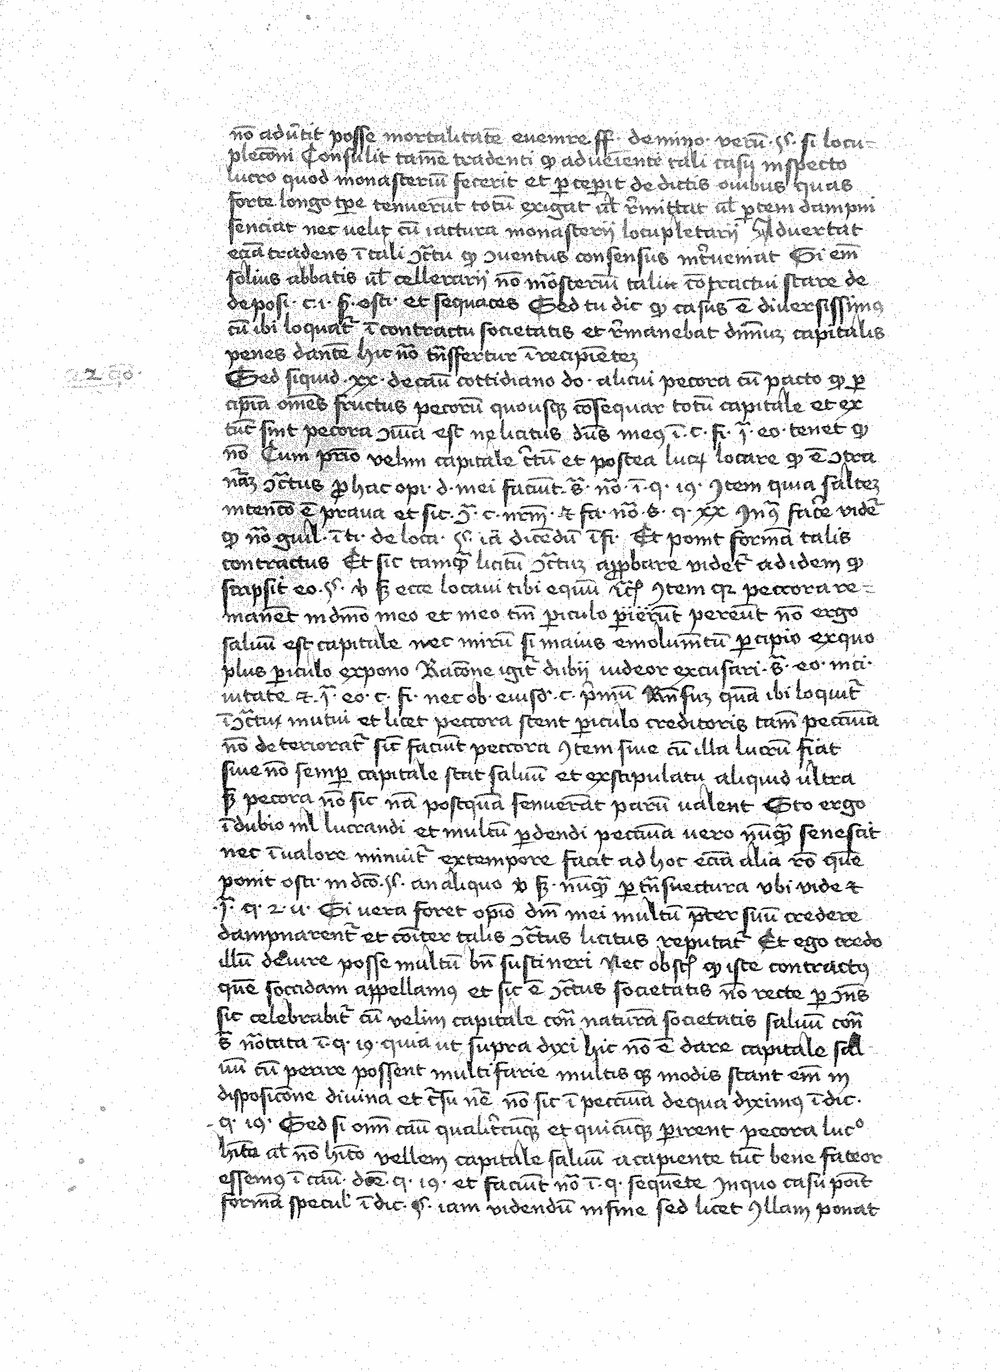 nō adūtit posse mortalitatē evenire ff. de mino. verū. §. si locu=
pleconi Consulit tamē tradenti qp adveiente tali casu inspecto
lucro quod monasteriū fecerit et pcepit de dictis ovibus quas
forte longo tpe tenuerūt totū exigat ul rmittat ul ptem dampni
senciat nec velit cū iactura monasterii locupletarii Advertat
eciā tradens ī tali ɔctu qp ɔventus consensus intveniat Si em
solius abbatis ul cellerarii nō mōsteriū tali cōtractui stare de
deposi. c. i. osti. et sequaces Sed tu dic qp casus ē diversissimus
cū ibi loquat ī contractu societatis et rmanebat dniuz capitalis
penes dantē hic nō tnsffertur ī recipiētez
a 2 qo.
Sed siquid. xx. de cau cottidiano do. alicui pecora cū pacto qp p
cipiā omēs fructus pecorū quousqz cōsequar totū capitale et ex
tūc sint pecora ɔmia est ne licitus dns meus ī. c. fi. eo. tenet qp
nō Cum prīo velim capitale ctū et postea lucrū locare qp ē ɔtra
nāz ɔctus p hac opi. d. mei faciūt. s. nō. ī. q. 19. Item quia saltez
intencō ē prava et sic. c. nrm. et fa. nō. s. q. xx In qua facere videt
qp nō guil. ī ti. de loca. §. iā dicendū ī fi. Et ponit formā talis
contractus Et sic tamqp licitū ɔctuz approbare videt ad idem qp
scripsit eo. §. v ecce locavi tibi equū Item qz peccora re=
manēt in dnio meo et meo tm piculo pierint pereūt nō ergo
salvū est capitale nec mirū si maius emolumtū pcipio ex quo
plus piculo expono Racone igit dubii videor excusari. s. eo. in ci.
vitate et. eo. c. fi. nec ob. eiusd. c. pmū Rnsuz quā ibi loquit
ī ɔctu mutui et licet peccora stent piculo creditoris tam peccunia
nō deteriorat sic faciūt peccora Item sive cū illa lucrū fiat
sive nō semp capitale stat salvū et exstipulatu aliquid ultra
pecora nō sic nā postquā senuerāt parū valent Sto ergo
ī dubio nil lucrandi et multū pdendi peccunia vero nūqp senescit
nec ī valore minuit ex tempore facit ad hoc eciā alia rō quē
ponit osti. in dcō. §. an aliquo v nūqp p tnsvectura ubi vide et
q. 2. 11. Si vera foret opio dni mei multū pter suū credere
dampnarent et coiter talis ɔctus licitus reputat Et ego credo
illū de iure posse multū bn sustineri Nec obst qp iste contractus
quē soccidam appellamus et sic ē ɔctus societatis nō recte p
sic celebrabit cū velim capitale con naturā societatis salvū con
s nōtata ī. q. 19. quia ut supra dixi hic nō ē dare capitale sal
vū cū perire possent multifarie multis qz modis stant em in
disposicōne divina et nō sic ī peccunia de qua diximus ī dic.
q. 19. Sed si omn cau qualitcūqz et quicūqz pirent pecora luco
hito al nō hito vellem capitale salvū a capiente tūc bene fateor
essemus ī cau. q. 19. et faciūt nō ī. q. sequēte In quo casu poit
formā specul ī dic. §. iam videndū in fine sed licet Illam ponat